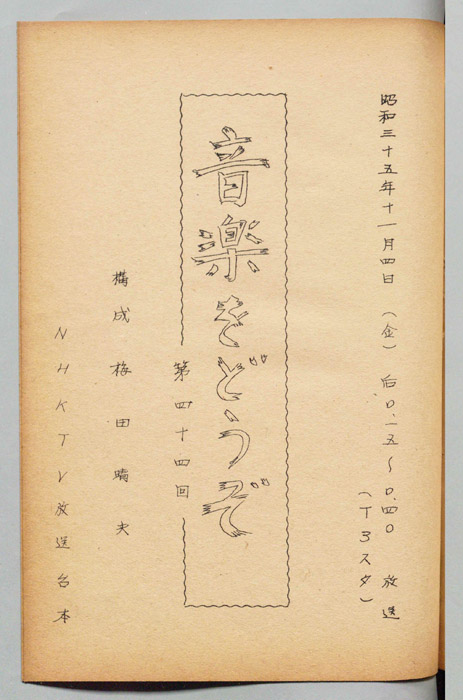 昭和三十五年十一月四日(金)后0.15～0.40放送
(T3スタ)
音楽をどうぞ
第四十四回
構成 梅田晴夫
NHKTV放送台本